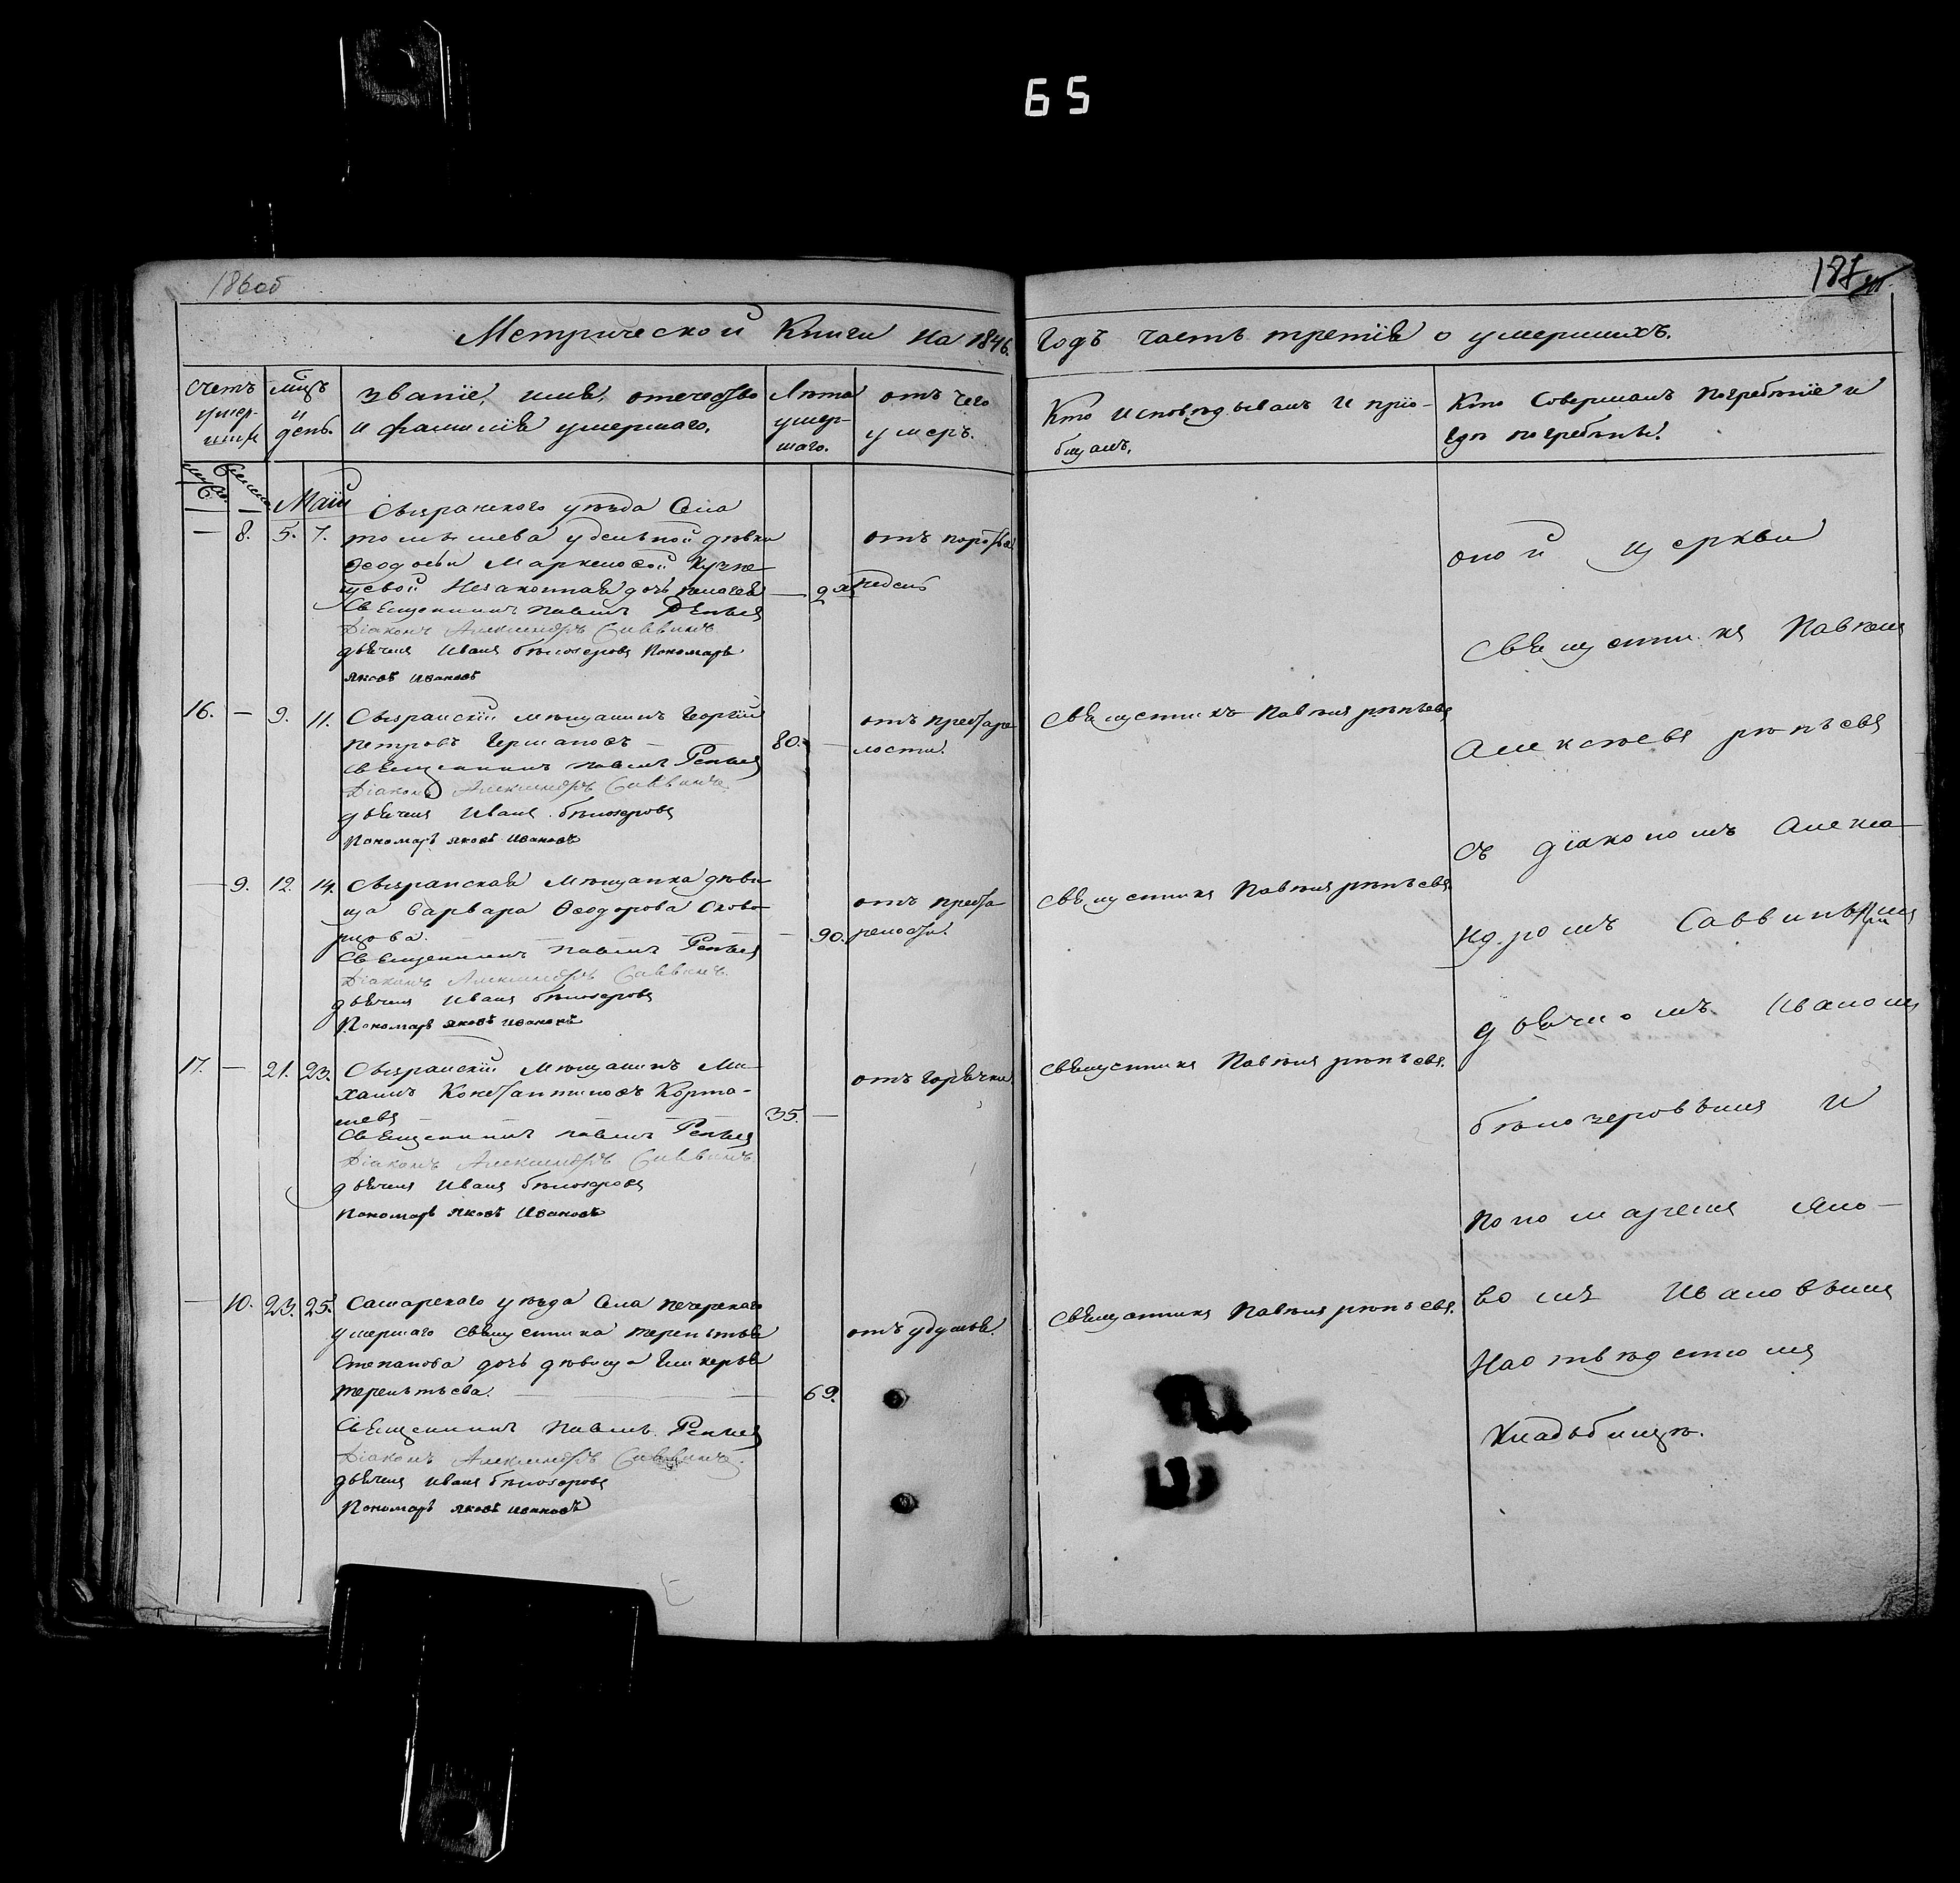 65
186об
187
Метрической Книги на 1846.
Годъ часть третія о умершихъ.
Счетъ умерших
мцъ и день.
званіе, имя, отечество
и фамилія умершаго.
Лѣта умер-
шаго.
отъ чего
умеръ.
Кто исповѣдывалъ и прiо-
бщалъ.
Кто совершалъ погребѣніе и
гдѣ погребѣны.
Маій
Сызранскаго уѣзда Села
— 8. 5. 7. томышева удельной дѣвки
Ѳеодосьи Маркеловой
незаконная дочь Пелагея — 2
отъ
Священникъ Павелъ Репьев
Діаконъ Александръ Саввинъ
дьячекъ Иванъ бѣлозеровъ Пономарь
Яковъ Ивановъ
16. — 9. 11. Сызранскій мѣщанинъ Георгій
Петровъ Германовъ — 80. —
отъ престаре
лости.
Священникъ Павелъ рѣпьевъ
Священникъ Павелъ Репьев
Діаконъ Александръ Саввинъ
дьячекъ Иванъ бѣлозеровъ
Пономарь Яковъ Ивановъ
— 9. 12. 14. Сызранская мѣщанка дѣви
ца Варвара Ѳеодорова Сково
рцова. — 90.
отъ преста
релости.
Священникъ Павелъ рѣпьевъ.
Священникъ Павелъ Репьев
Діаконъ Александръ Саввинъ
дьячекъ Иванъ бѣлозеровъ
Пономарь Яковъ Ивановъ
17. — 21. 23. Сызранскій мѣщанинъ Ми
хаилъ Константиновъ Карта-
шевъ 35. —
отъ горячки.
Священникъ Павелъ рѣпьевъ.
Священникъ Павелъ Репьев
Діаконъ Александръ Саввинъ
дьячекъ Иванъ бѣлозеровъ
Пономарь Яковъ Ивановъ
— 10. 23. 25. Самарскаго уѣзда Села печерскаго
умершаго священника терентья
Степанова дочь дѣвица Гликерья
терентьева. — 69.
отъ удушья.
Священникъ Павелъ рѣпьевъ.
Священникъ Павелъ Репьев
Діаконъ Александръ Саввинъ
дьячекъ Иванъ бѣлозеровъ
Пономарь Яковъ Ивановъ
оной церкви
Священникъ Павелъ
Алексѣевъ рѣпьевъ
съ діакономъ Алекса
ндромъ Саввинымъ
дьячкомъ Иваномъ
бѣлозеровымъ И
пономаремъ Яко-
вомъ Ивановымъ
На отведенномъ
Кладбищѣ.